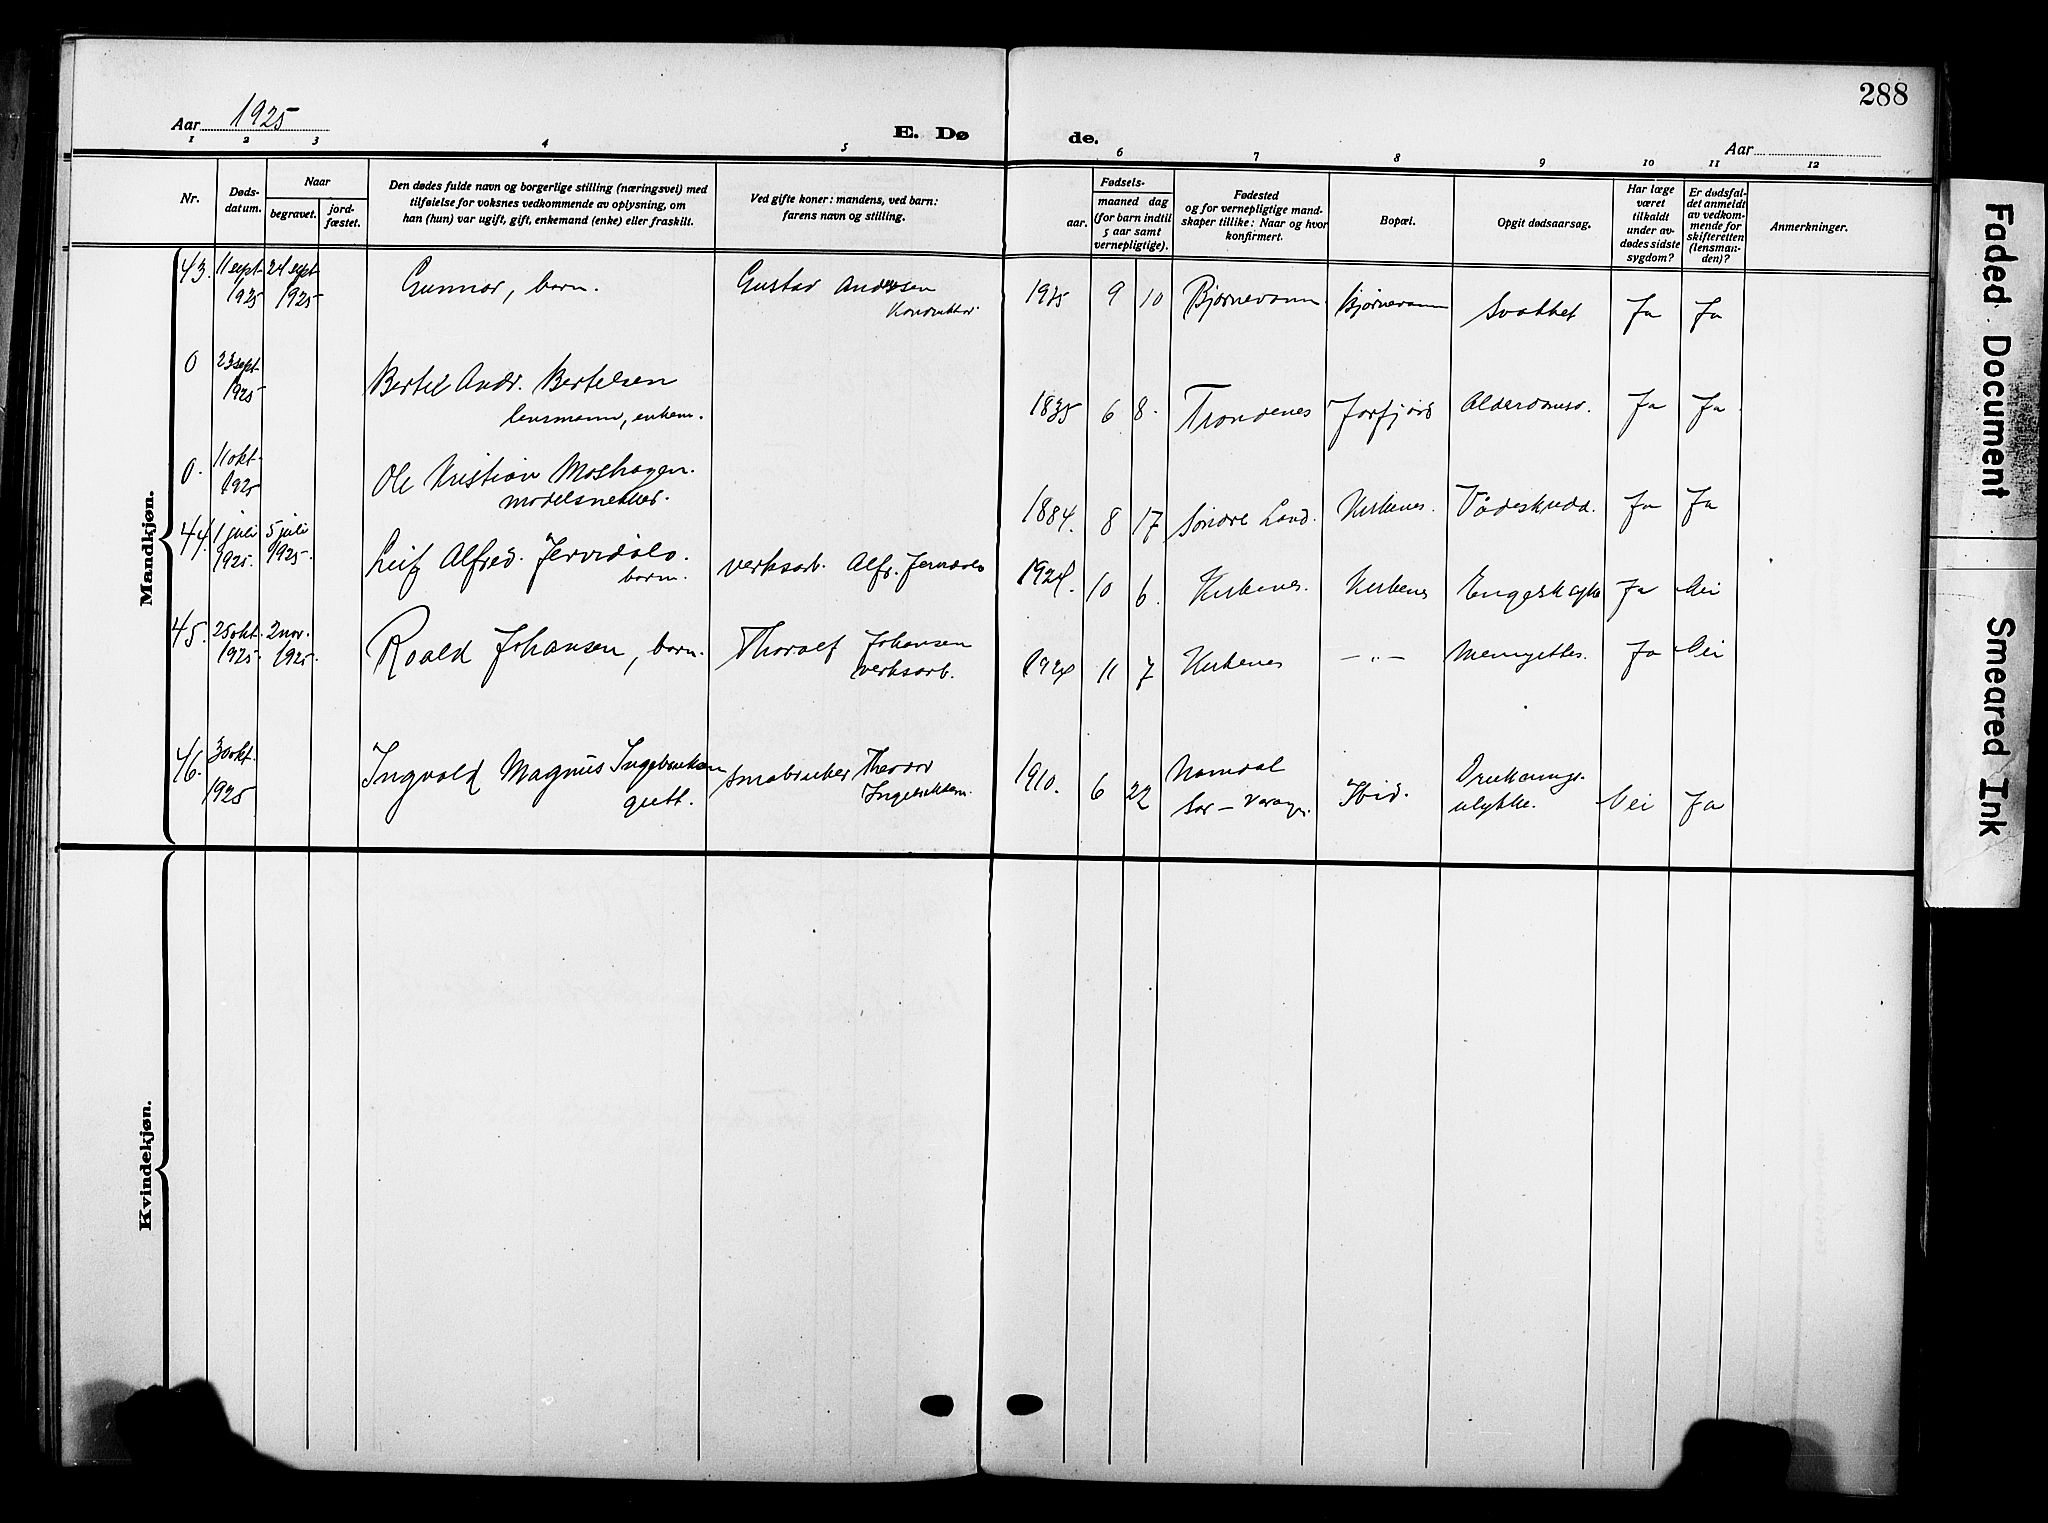 288
Aar 1925
E. Dø de.
Aar
1 2 3 4 5 6 7 8 9 10 11 12
Nr.
Døds-
datum.
Naar
begravet.
jord-
fæstet.
Den dødes fulde navn og borgerlige stilling (næringsvei) med
tilføielse for voksnes vedkommende av oplysning, om
han (hun) var ugift, gift, enkemand (enke) eller fraskilt.
Ved gifte koner: mandens, ved barn:
farens navn og stilling.
Fødsels-
aar.
maaned dag
(for barn indtil
5 aar samt
vernepligtige).
Fødested
og for vernepligtige mand-
skaper tillike: Naar og hvor
konfirmert.
Bopæl.
Opgit dødsaarsag.
Har læge
været
tilkaldt
under av-
dødes sidste
sygdom?
Er dødsfal-
det anmeldt
av vedkom-
mende for
skifteretten
(lensman-
den)?
Anmerkninger.
Mandkjøn.
43. 11 sept 1925 24 sept 1925 Gunnar, barn. Gustav Andersen Konduktør 1925 9 10 Bjørnevann. Bjørnevann Svakhet Ja Ja
0 23 sept 1925 Bertel Andr. Bertelsen
lensmann, enkem. 1835 6 8. Trondenes Jarfjord Alderdomssv. Ja Ja
0. 11 okt 1925 Ole Kristian Moshagen.
modelsnekker. 1884. 8 17 Søndre Land. Kirkenes. Vådeskudd. Ja Ja
44. 1 juli 1925. 5 juli 1925. Leif Alfred Jervidalo.
barn. verksarb. Alfr. Jervidalo 1924. 10 6. Kirkenes. Kirkenes Eng. syke Ja Nei
45. 25 okt. 1925. 2 nov. 1925. Roald Johansen, barn. Thoralf Johansen
verksarb. 1924 11 7 Kirkenes —"— Meningittes. Ja Nei
46. 30 okt. 1925 Ingvald Magnus Ingebriktsen
gutt. småbruker Theodor
Ingebriktsen. 1910. 6 22 Namdal
Sør-Varanger. Ibid. Druknings-
ulykke. Nei Ja
Kvindekjøn.
Faded Document
Smeared Ink